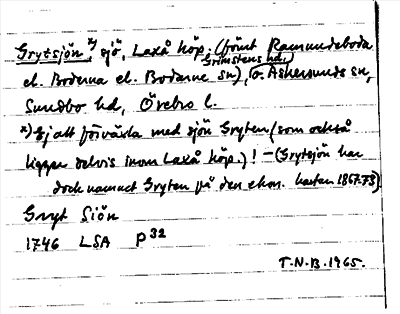 Grytsjön, x) sjö, Laxå köp. (förut Ramundeboda
el. Bodarna el. Bodarne sn), Grimstens hd, o. Askersunds sn,
Sundbo hd, Örebro l.
x) Ej att förväxla med sjön Gryten (som också
ligger delvis inom Laxå köp.)! – (Grytsjön har
dock namnet Gryten på den ekon. kartan 1867-73)
Gryt Siön
1746 LSA P 32
T.N.B. 1965.